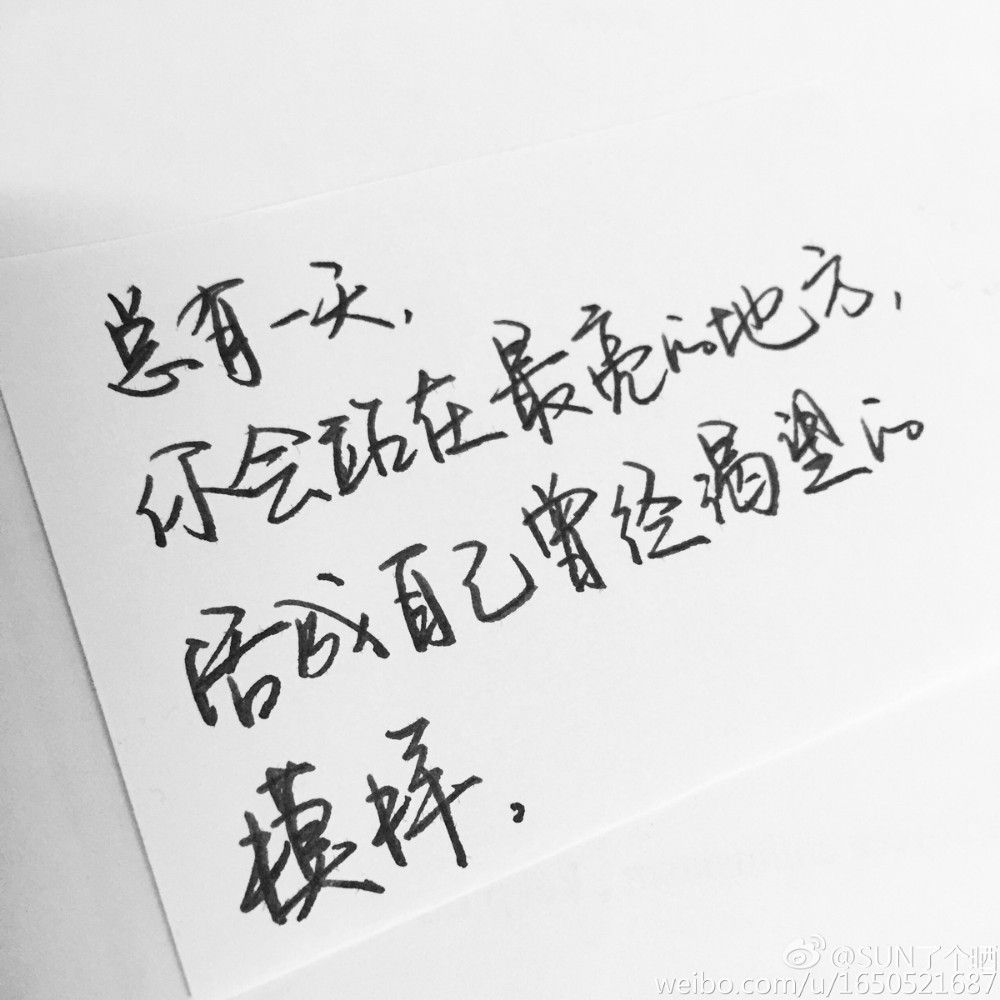 总有一天,
你会站在最亮的地方,
活成自己曾经渴望的
模样。
@SUN了个晒
weibo.com/u/1650521687